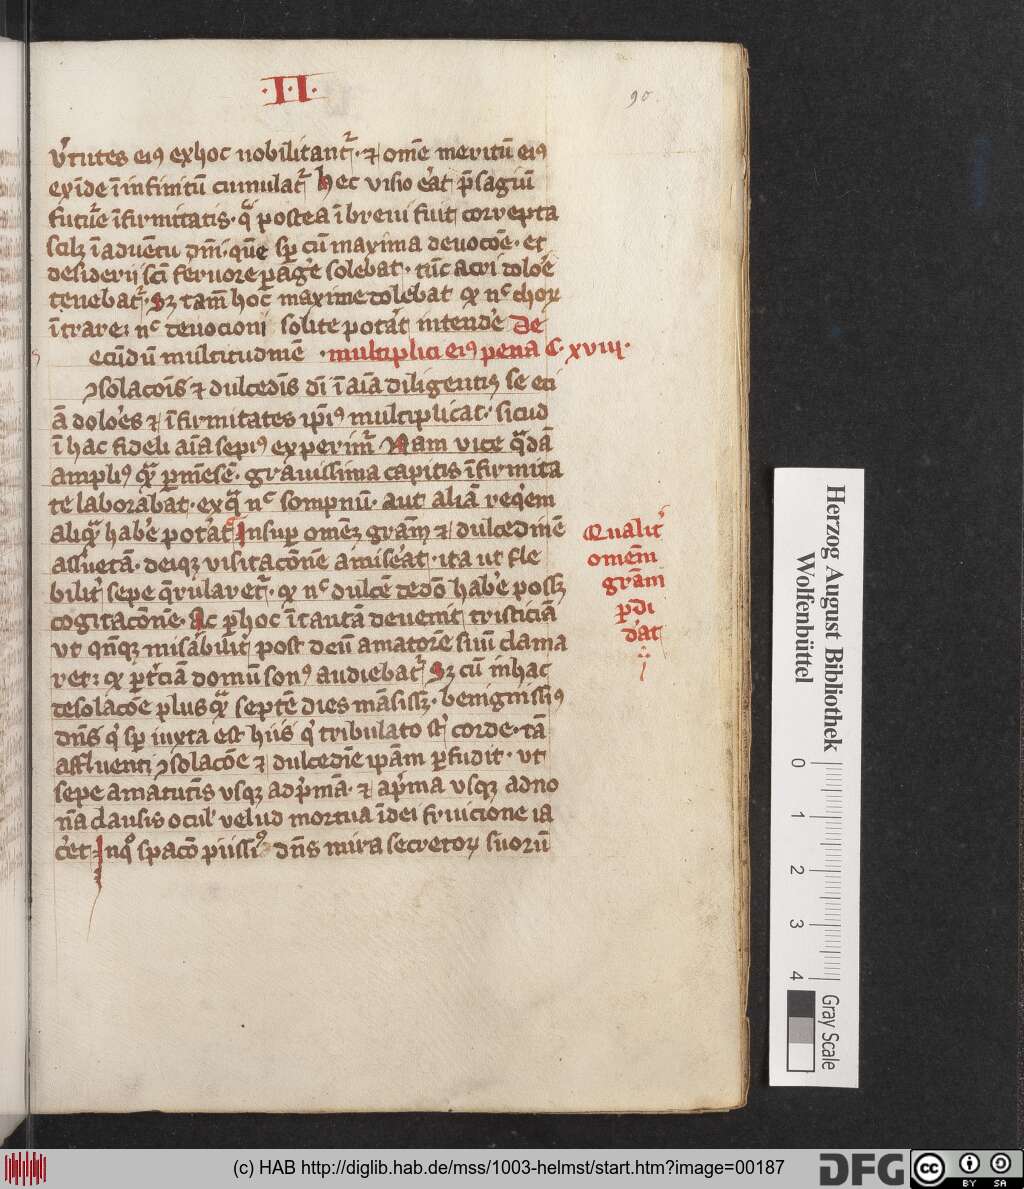 ·II·
90
v̓tutes eiꝯ exhoc nobilitant᷑·⁊ om̄e meritū eiꝯ
exīde īinfinitū cumulat᷑ hec visio eāt p̄sagiū
futur̄e īfirmitatis·qͣ postea ībreui fuit correpta
scilꝫ īaduētu dn̄i·quē sp̱ cū maxima deuocōe·et
desiderij sc̄i feruore ꝑag̓e solebat·tūc acri dolo̓e
tenebat᷑·Sꝫ tam̄ hoc maxime dolebat ꝙ nͨ choꝝ
ītrare: nͨ deuocioni solite potat̓ intende̓ De
ecūdū multitudinē ·multiplici eiꝯ pena C·xviii·
ꝯsolacōis ⁊ dulcedīs dī īaīa diligentiꝯ se eti
ā dolo̓es ⁊ īfirmitates ip̄iꝯ multiplicat·sicud
ī hac fideli aīa sepiꝯ experim᷑ Nam vice qͣdā
ampliꝯ qͣ ꝑmēsē·grauissima capitis īfirmita
te laborabat·exqͣ nͨ sompnū·aut aliā req̓em
aliqͣ habe̓ potat̓ Insuꝑ omēꝫ grām ⁊ dulcedinē
assuetā·deiqꝫ visitacōnē amise̓at·ita ut fle
bilit̓ sepe q̓rularet᷑·ꝙ nͨ dulcē dedō habe̓ possꝫ
cogitacōnē·Ac ꝑhoc ītantā deuenit tristiciā
vt qn̄qꝫ mis̓abilit̓ post deū amatorē suū clama
ret: ꝙ ꝑt̓ciā domū sonꝯ audiebat᷑ Sꝫ cū inhac
desolacōe plus qͣ septē dies māsissꝫ·benignissiꝯ
dn̄s q̓ sp̱ iuxta est hiis q̓ tribulato st̓ corde·tā
affluenti ꝯsolacōe ⁊ dulcedīe ipām ꝑfudit·vt
sepe amatutīs vsqꝫ adp̓mā·⁊ ap̓ma vsqꝫ adno
nā clausis ocul̓ velud mortua īdei fruicione ia
ce̓t Inqͦ spacō piissiꝯ dn̄s mira secretoꝝ suorū
Qualit̓
omēm
grām
ꝑdi
d̓at
Herzog August Bibliothek
Wolfenbüttel
0 1 2 3 4
Gray Scale
(c) HAB http://diglib.hab.de/mss/1003-helmst/start.htm?image=00187
DFG
cc BY SA